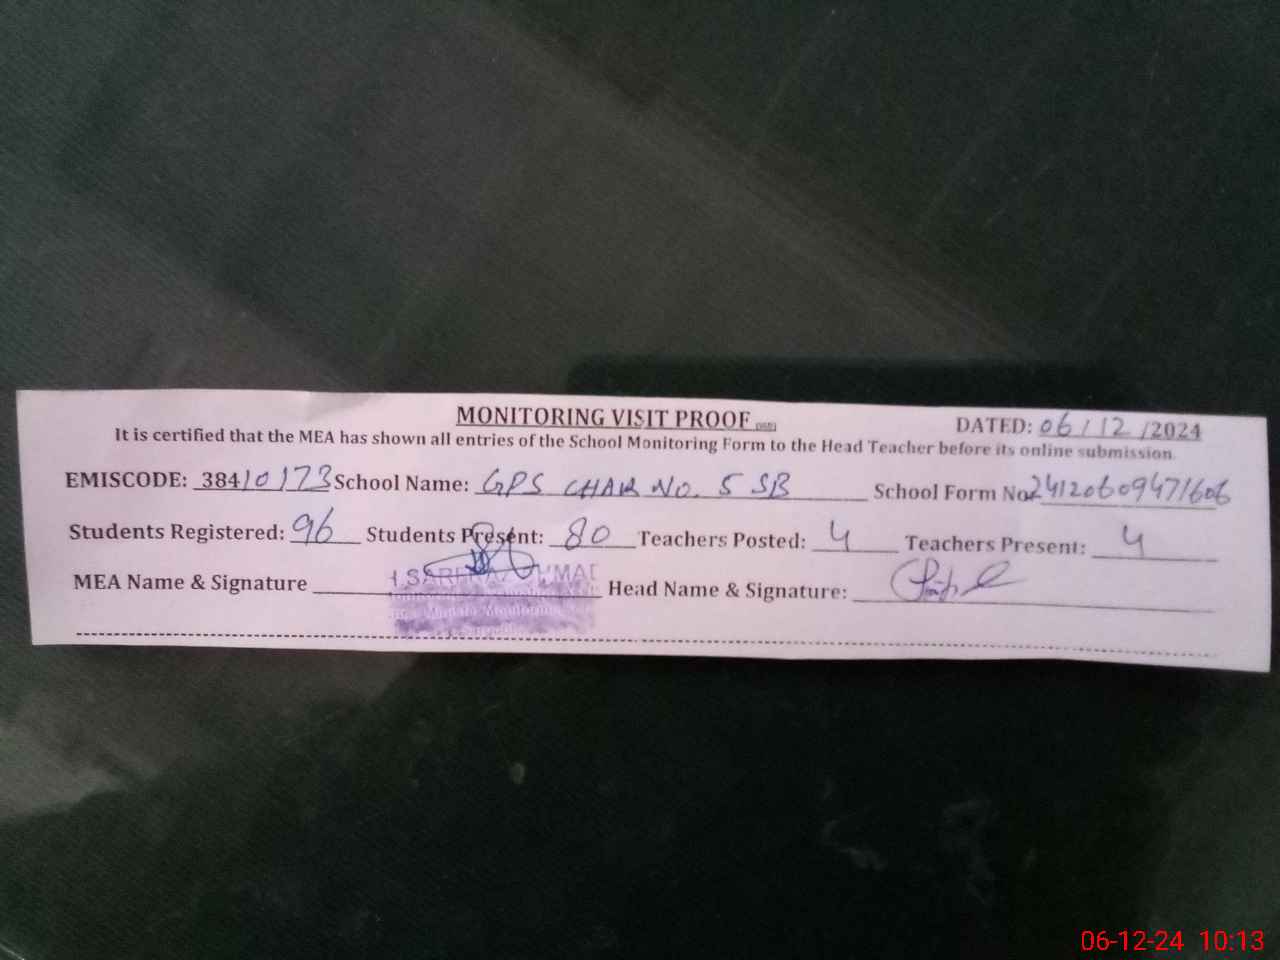 MONITORING VISIT PROOF
DATED: 06/12/2024
It is certified that the MEA has shown all entries of the School Monitoring Form to the Head Teacher before its online submission.
EMISCODE: 38410173 School Name: GPS CHAK NO. 5 SB School Form No. 24120609471606
Students Registered: 96 Students Present: 80 Teachers Posted: 4 Teachers Present: 4
MEA Name & Signature Head Name & Signature:
06-12-24 10:13